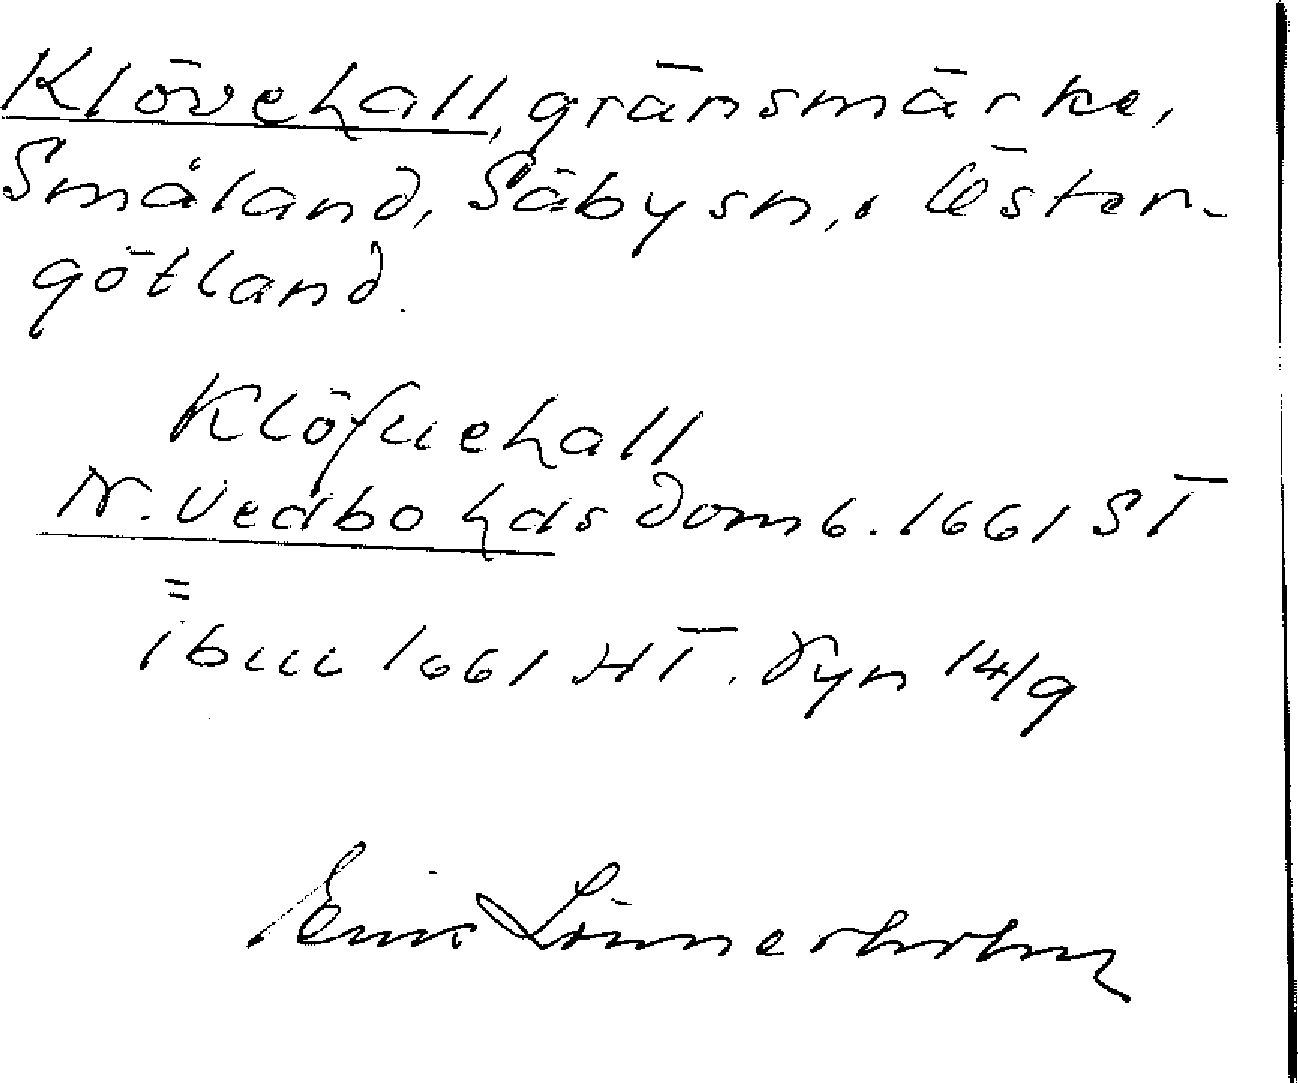 Klövehall, gränsmärke,
Småland, Säby sn, Öster-
götland.
Klöfuehall
N. Vedbo hds domb. 1661 ST
=
ibm 1661 HT. Syn 14/9
Linnerholm